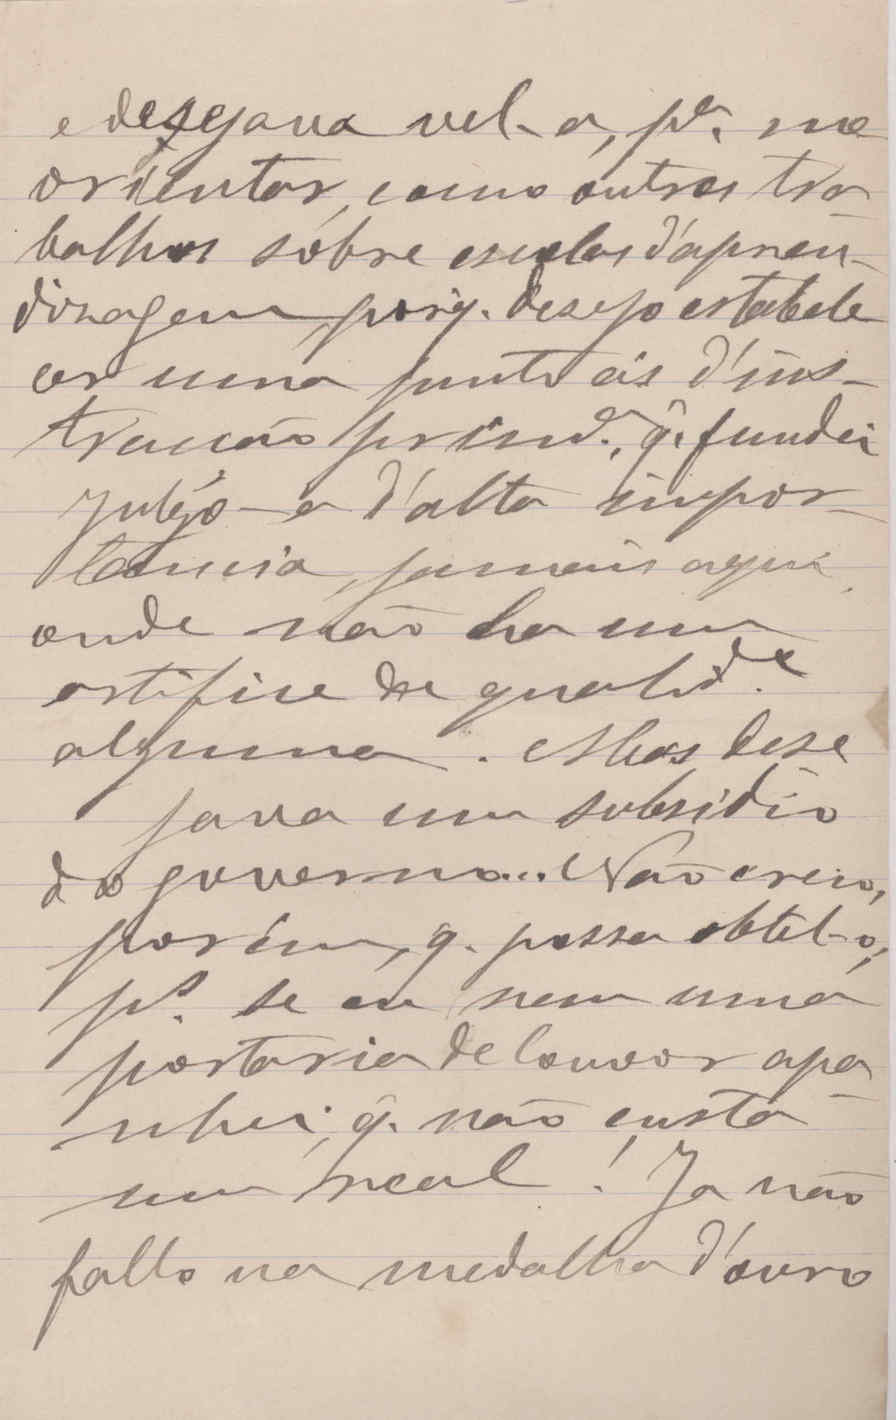 e desejava vel-a, pª. me
orientar, como outros tra
balhos sobre escolas d'apren-
dizagem, porq. desejo estabele
cer uma junto ás d'ins-
trucção prim.ª, q. fundei
Julgo-a d'alta impor-
tancia, jamais aqui
onde não ha um
artifice de qualid.e
alguma. Mas dese
java um subsidio
do governo... Não creio,
porém, q. possa obtel-o,
p.s se eu nem uma
portaria de louvor apa
nhei, q. não custa
um real! Ja não
fallo na medalha d'ouro